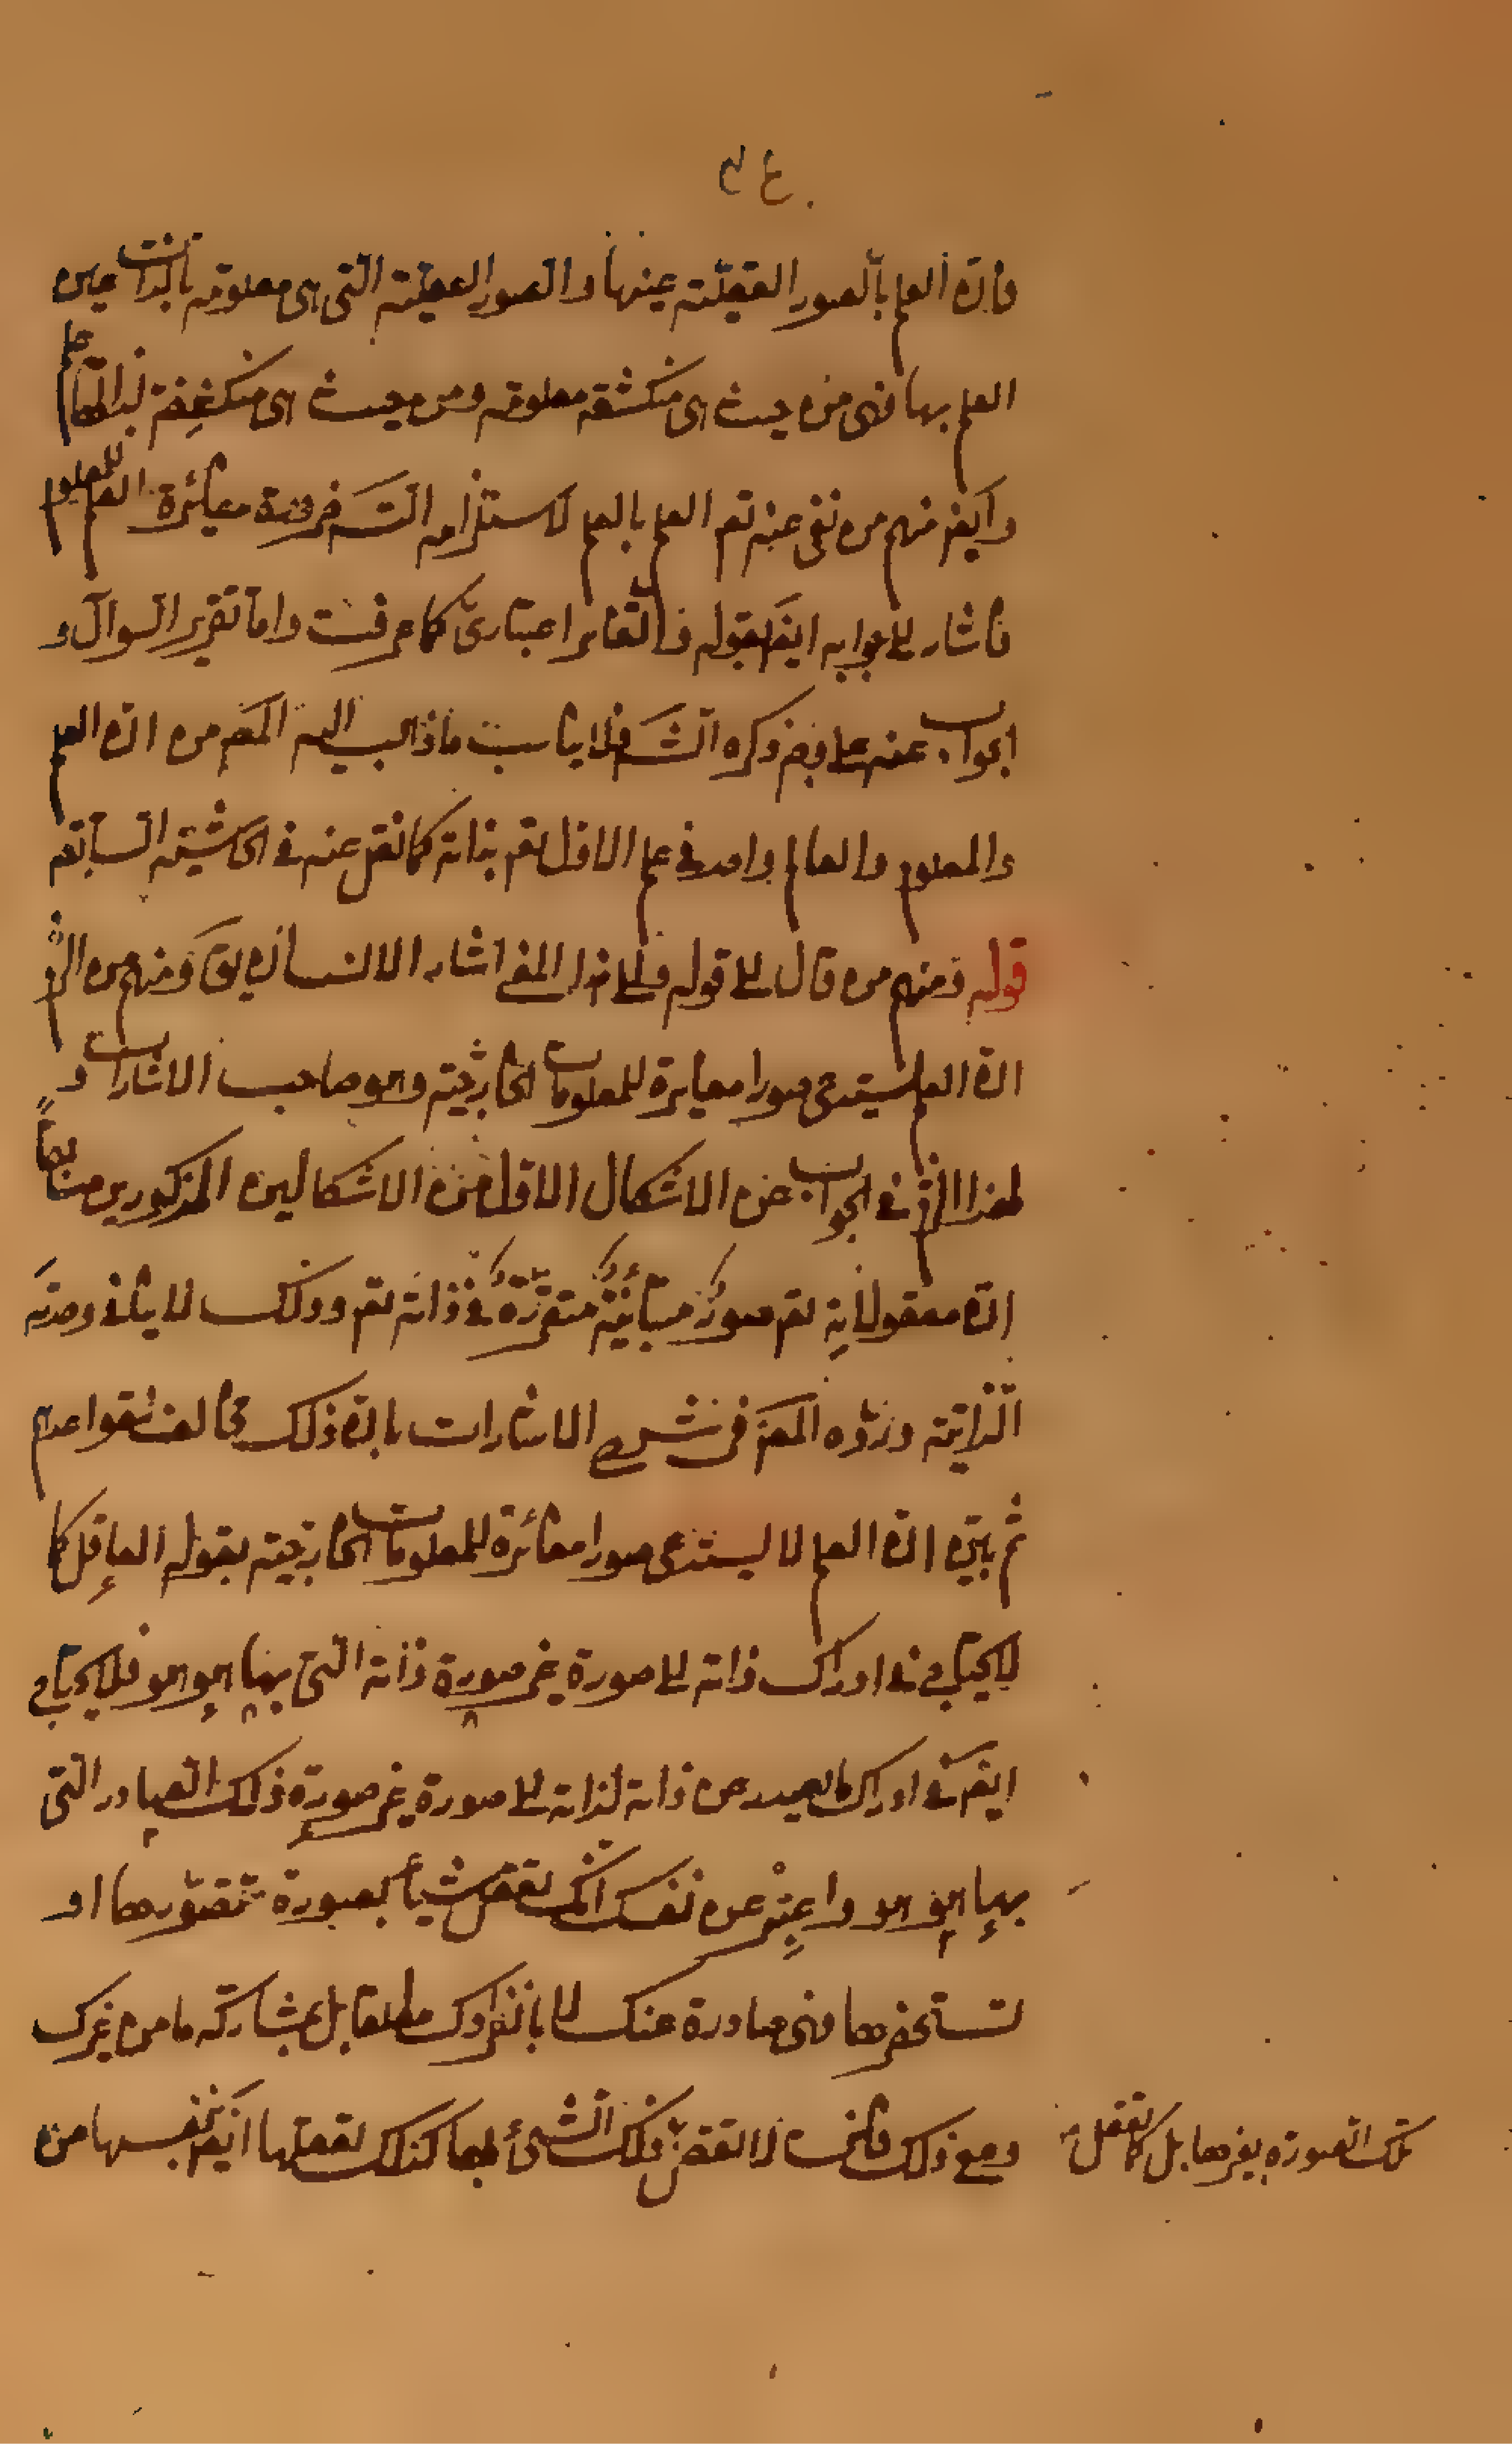 فان العلم بالصور العقلية عينها والصور العقلية التى هى معلومة بالذات عين
العلم بها فهى من حيث هى منكشفة معلومة ومن حيث هى منكشفة لهذا العالم علم
وايضا منهم من نفى عنه تعم العلم بالعلم لاستلزامه التسـ ضرورة مغائرة العلم للمعلوم
فاشار الى جوابه ايضا بقوله فالتغاير اعتبارى كما عرفت واما تقرير السوال و
الجواب عنه على وجه ذكره الشـ فلا يناسب ما ذهب اليه المصر من ان العلم
والمعلوم والعالم واحد فى علم الاول تعم بذاته كما نقل عنه فى الحاشية السابقة
قوله ومنهم من قال الى قوله والى هذا المعنى اشار الانسان يق ومنهم من الـ
ان العلم يستدعى صورا مغايرة للمعلومات الخارجية وهو صاحب الاشارات و
لهذا فى الجواب عن الاشكال الاول من الاشكالين المذكورين سابقا
ان معقولاته تعم صور متبائنة متقررة فى ذاته تعم وذلك لا ينافى وحدته
الذاتية ورده المصر فى شرح الاشارات بان ذلك مخالف لقواعدهم
ثم بين ان العلم لا يستدعى صورا مغائرة للمعلومات الخارجية بقوله العاقل كما
لا يحتاج فى ادراك ذاته الى صورة غير صورة ذاته التى بها هو هو فلا يحتاج
ايضا فى ادراك ما يصدر عن ذاته لذاته الى صورة غير صورة ذلك الصادر التى
بها هو هو واعتبر من نفسك انك تعقل شيئا بصورة تتصورها او
تستحضرها فهى صادرة عنك لا بانفرادك مطلقا بل بمشاركة ما من غيرك
ومع ذلك فانت لا تعقل تلك الشئ بها كذلك تعقلها ايضا بنفسها من
تلك الصورة بغيرها بل كما تعقل